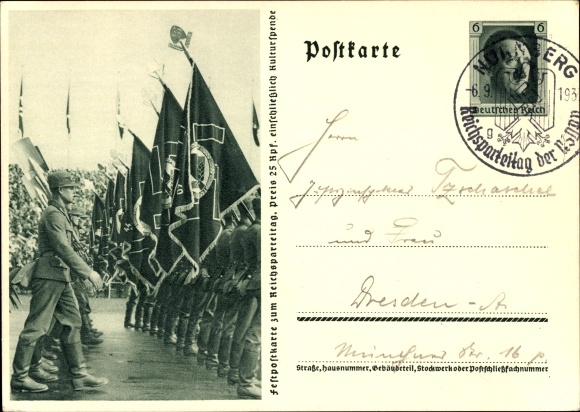 Festpostkarte zum Reichsparteitag. Preis 25 Rpf. einschließlich Kulturspende
Postkarte
6 6
Deutsches Reich
NÜRNBERG
-6.9.193
g
Reichsparteitag der NSDAP
Herrn
Tzschaschel
und Frau
Dresden-A
Münchner Str. 16
Straße, Hausnummer, Gebäudeteil, Stockwerk oder Postschließfachnummer